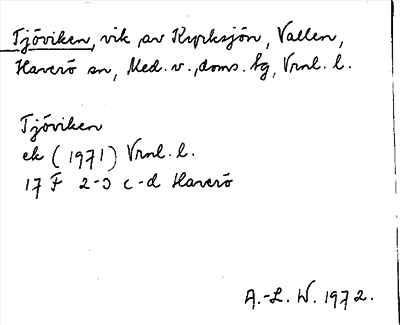 Tjöviken, vik av Kyrksjön, Vallen,
Haverö sn, Med. v., doms. tg, Vrnl. l.
Tjöviken
ek (1971) Vrnl. l.
17 F 2-3 c-d Haverö
A.-L. W. 1972.